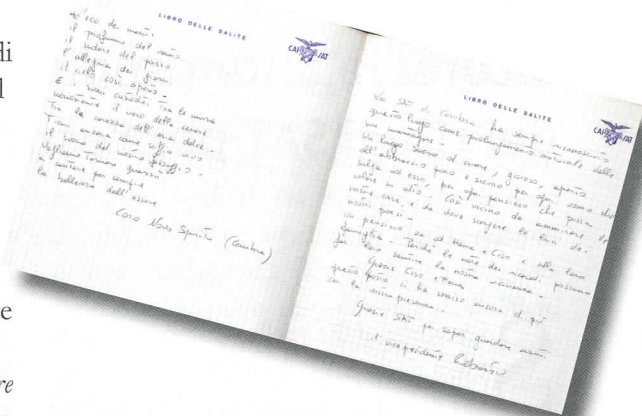 di
l
e
re
LIBRO DELLE SALITE
CAI SAT
L'eco dei monti
il profumo del vento
il sudore del passo
l'allegria dei giorni
il cielo così aperto
E i suoni custoditi tra le mura
il vero della
Tra la carezza dell'ora dolce
ancora come soffio vivo
il suono del nostro passaggio
Vogliamo tornare
e cantare per sempre
la bellezza dell'essere
Coro Nova Spiritu (Cembra)
LIBRO DELLE SALITE
CAI SAT
La SAT di Cembra ha sempre riconosciuto
questo luogo come prolungamento naturale delle
sue montagne.
Un luogo sacro al cuore, gioioso, aperto
all'abbraccio pieno e sicuro per ogni uomo che
salga ad esso, per ogni pensiero che possa
volare in alto. Così vicino da ammirare le
nostre case, e da dove scorgere le luci dei
nostri paesi
Un pensiero va ad Irene e Ciso e alla loro
famiglia. Perché le note dei ricordi possano
far loro sentire la nostra vicinanza.
Grazie Ciso e Irene
questo posto ci ha unito ancora di più
con la vostra presenza.
Grazie SAT per saper guardare
il vicepresidente